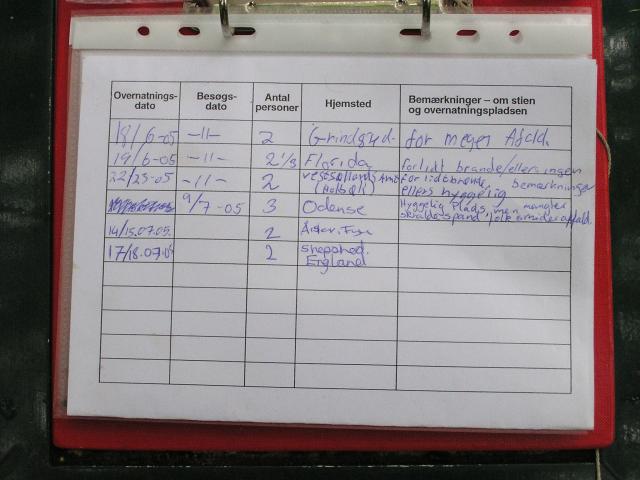 Overnatnings- Besøgs- Antal Hjemsted Bemærkninger – om stien
dato dato personer og overnatningspladsen
18/6-05 -11- 2 Grindsted. for meget Afald.
19/6-05 -11- 2 1/3 Florida forlidt brande/ellers ingen
bemærkninger
22/23-05 -11- 2 Vestsjællands Amt for lidt brænde,
(Holbæk) ellers hyggelig
9/7-05 3 Odense Hyggelig Plads, men mangler
skraldespand, folk smider affald.
14/15.07.05. 2
17/18.07.05 2 Shepshed.
England